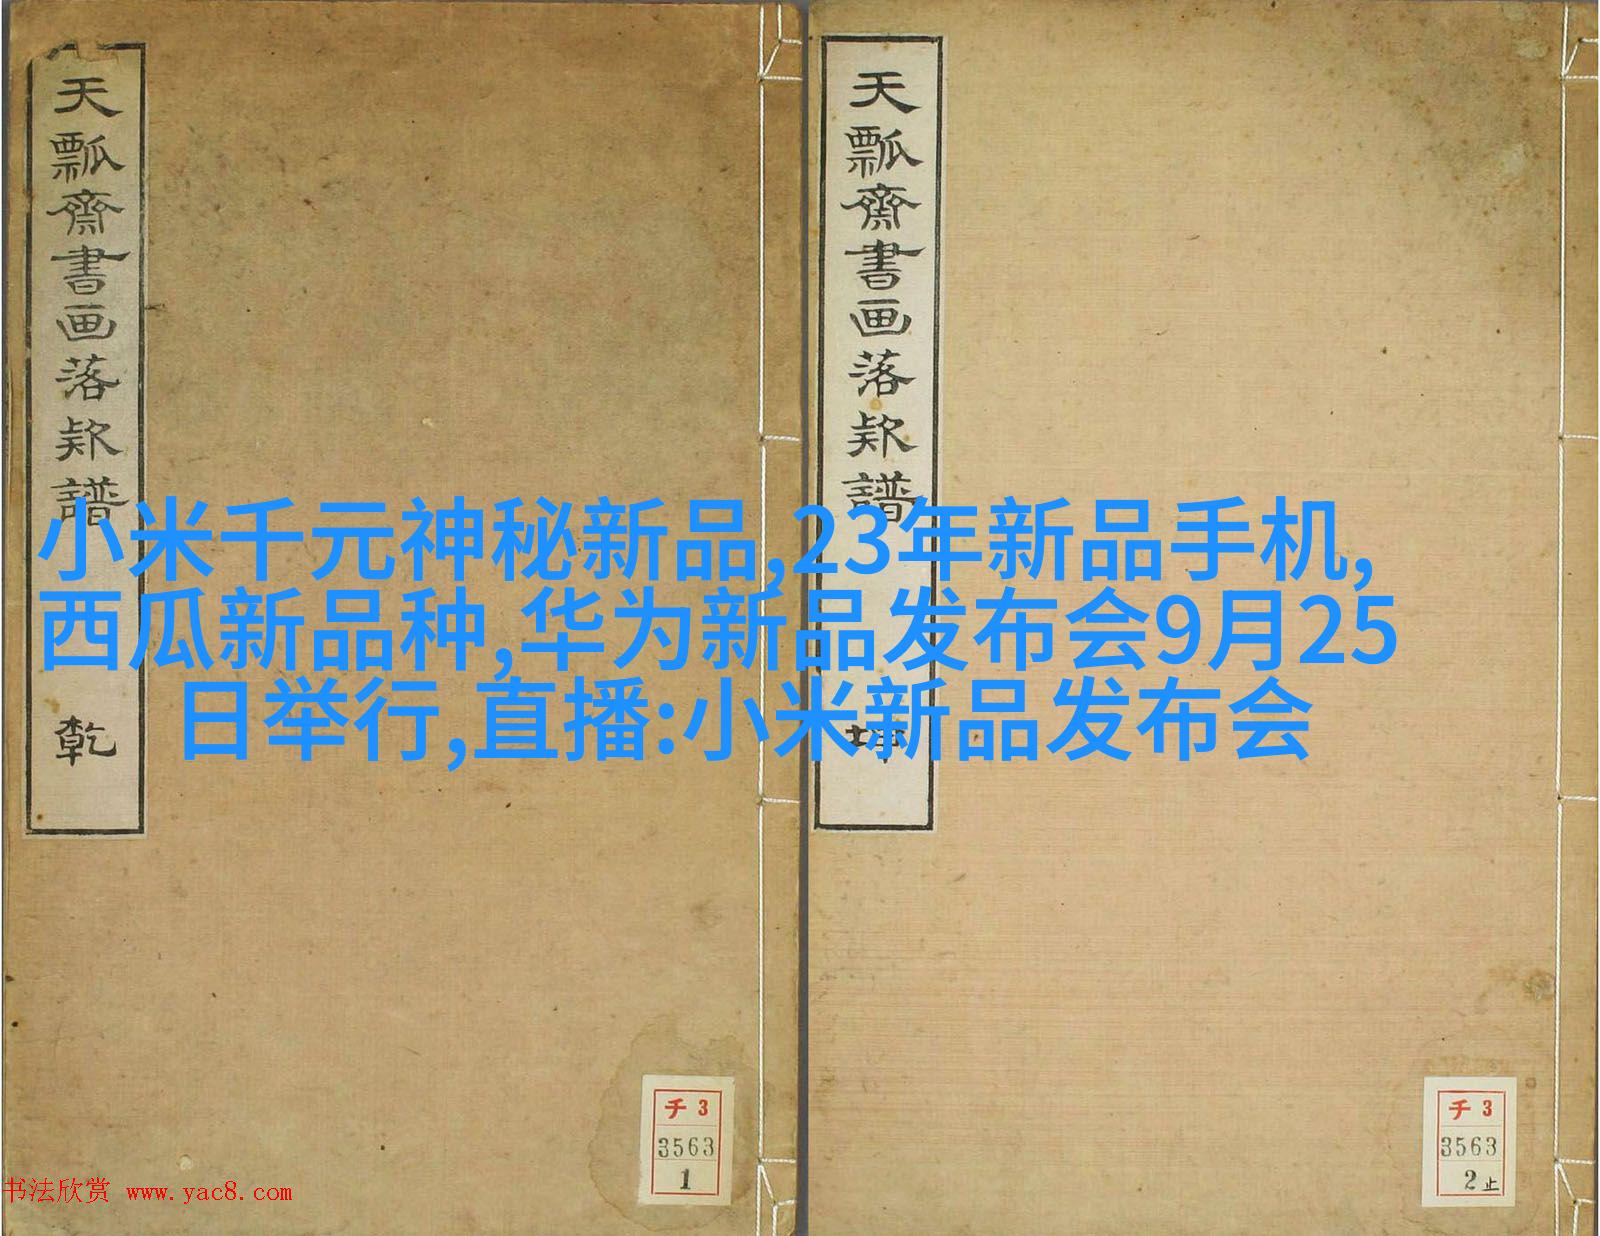 天瓢斎書画落款譜
乾
天瓢斎書画落款譜
坤
小米千元神秘新品,23年新品手机,
西瓜新品种,华为新品发布会9月25
日举行,直播:小米新品发布会
チ3
3563
1
チ3
3563
2止
书法欣赏 www.yac8.com